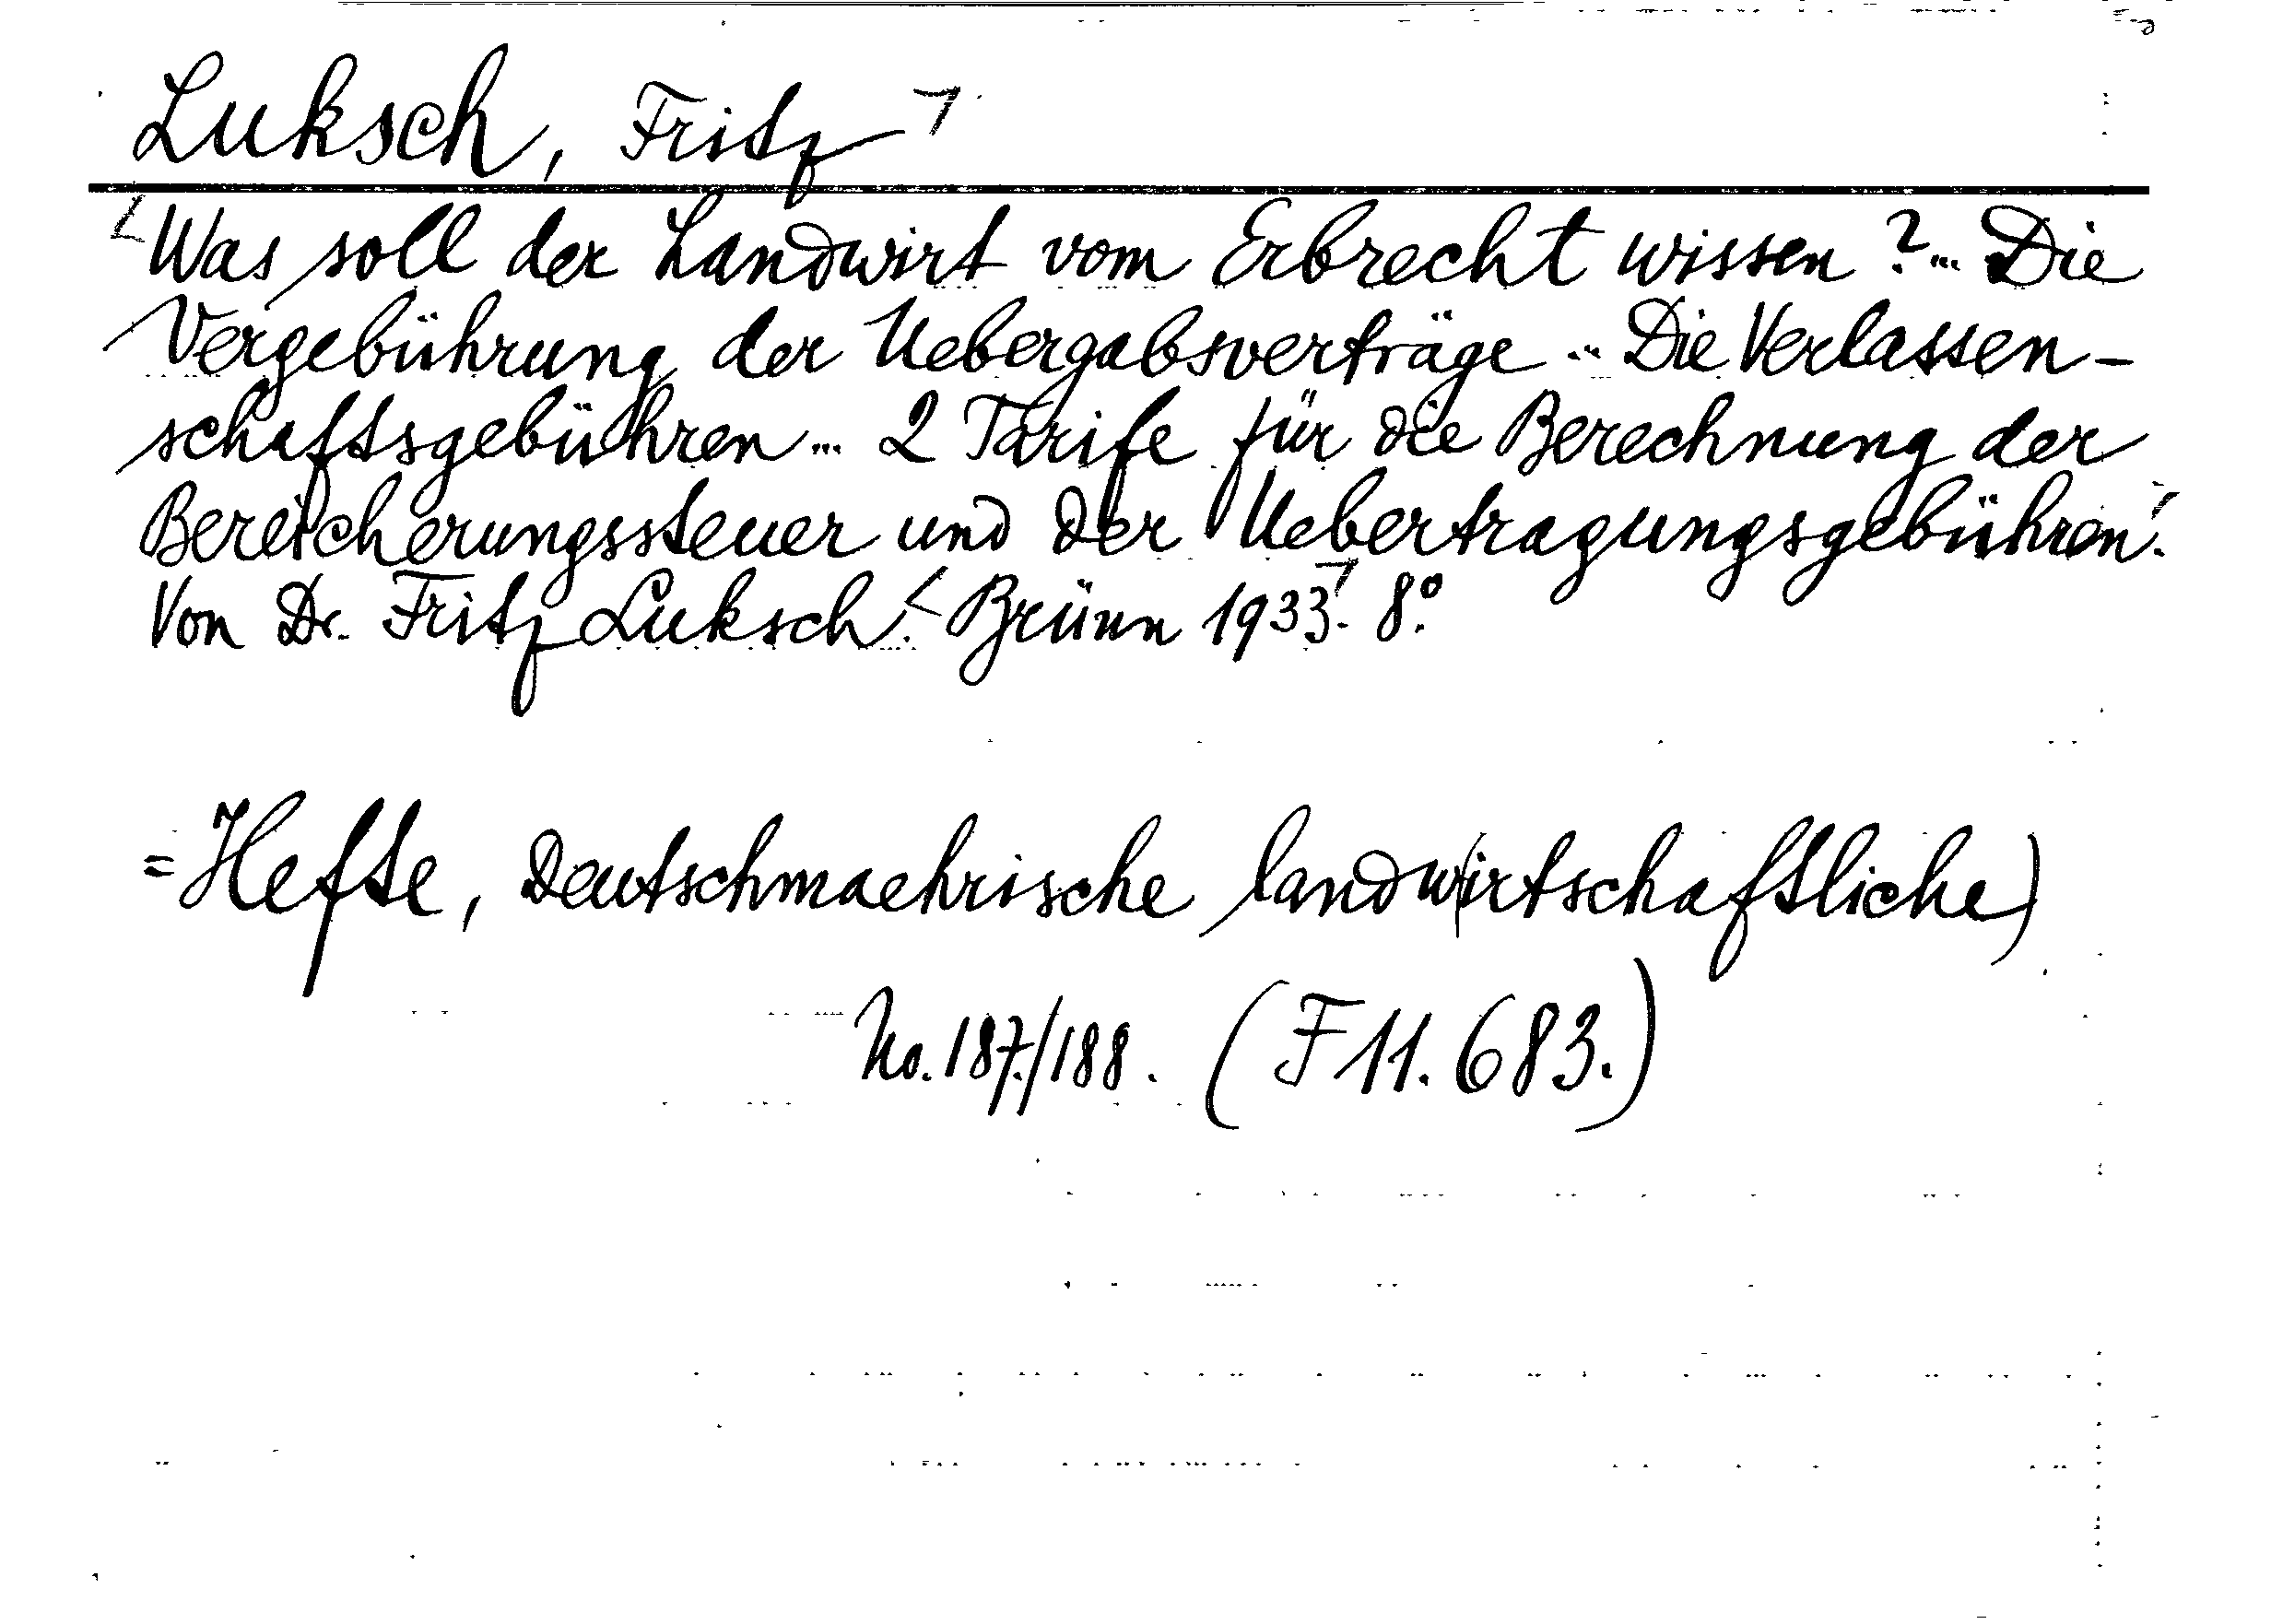 Luksch, Fritz
Was soll der Landwirt vom Erbrecht wissen?... Die
Vergebührung der Uebergabsverträge... Die Verlassen-
schaftsgebühren... 2 Tarife für die Berechnung der
Bereicherungssteuer und der Uebertragungsgebühren.
Von Dr. Fritz Luksch. Brünn 1933. 8°.
=Hefte, Deutschmaehrische landwirtschaftliche)
No. 187./188. (F 11.683.)